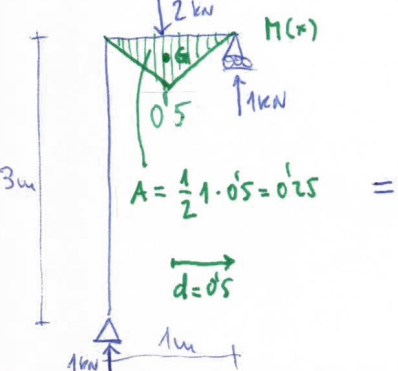 2 kN
M(x)
G
1kN
0'5
3m
A = 1/2 1 · 0'5 = 0'25 =
d = 0'5
1m
1kN